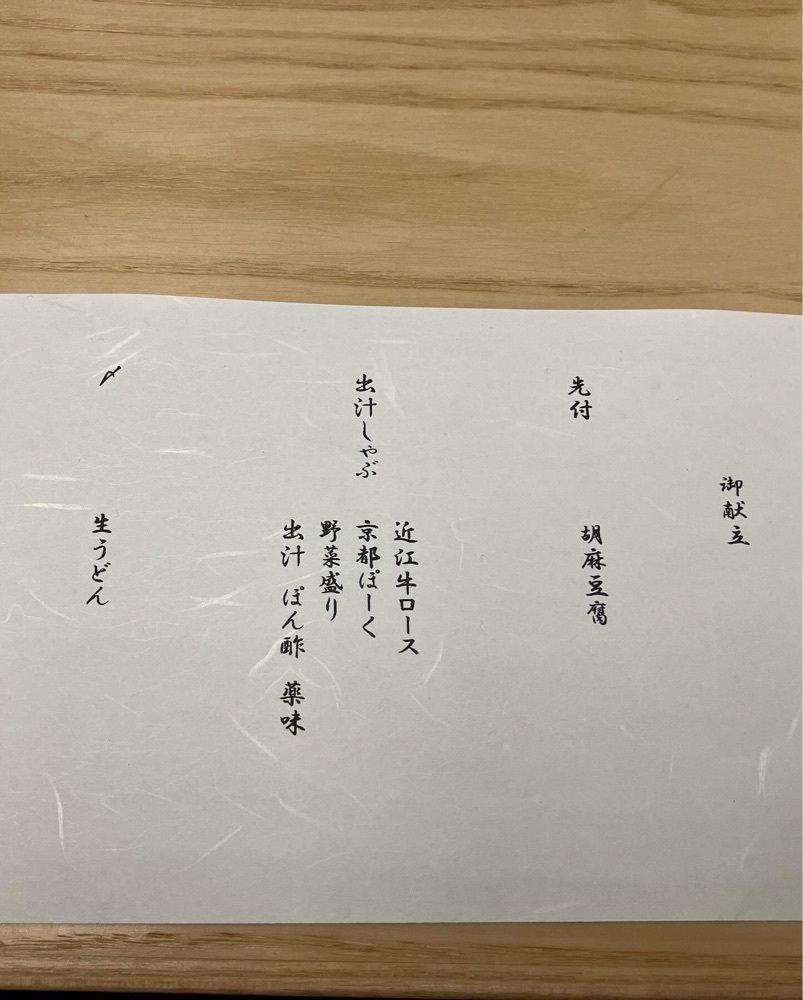 御献立
先付
胡麻豆腐
出汁しゃぶ
近江牛ロース
京都ぽーく
野菜盛り
出汁　ぽん酢　薬味
〆
生うどん